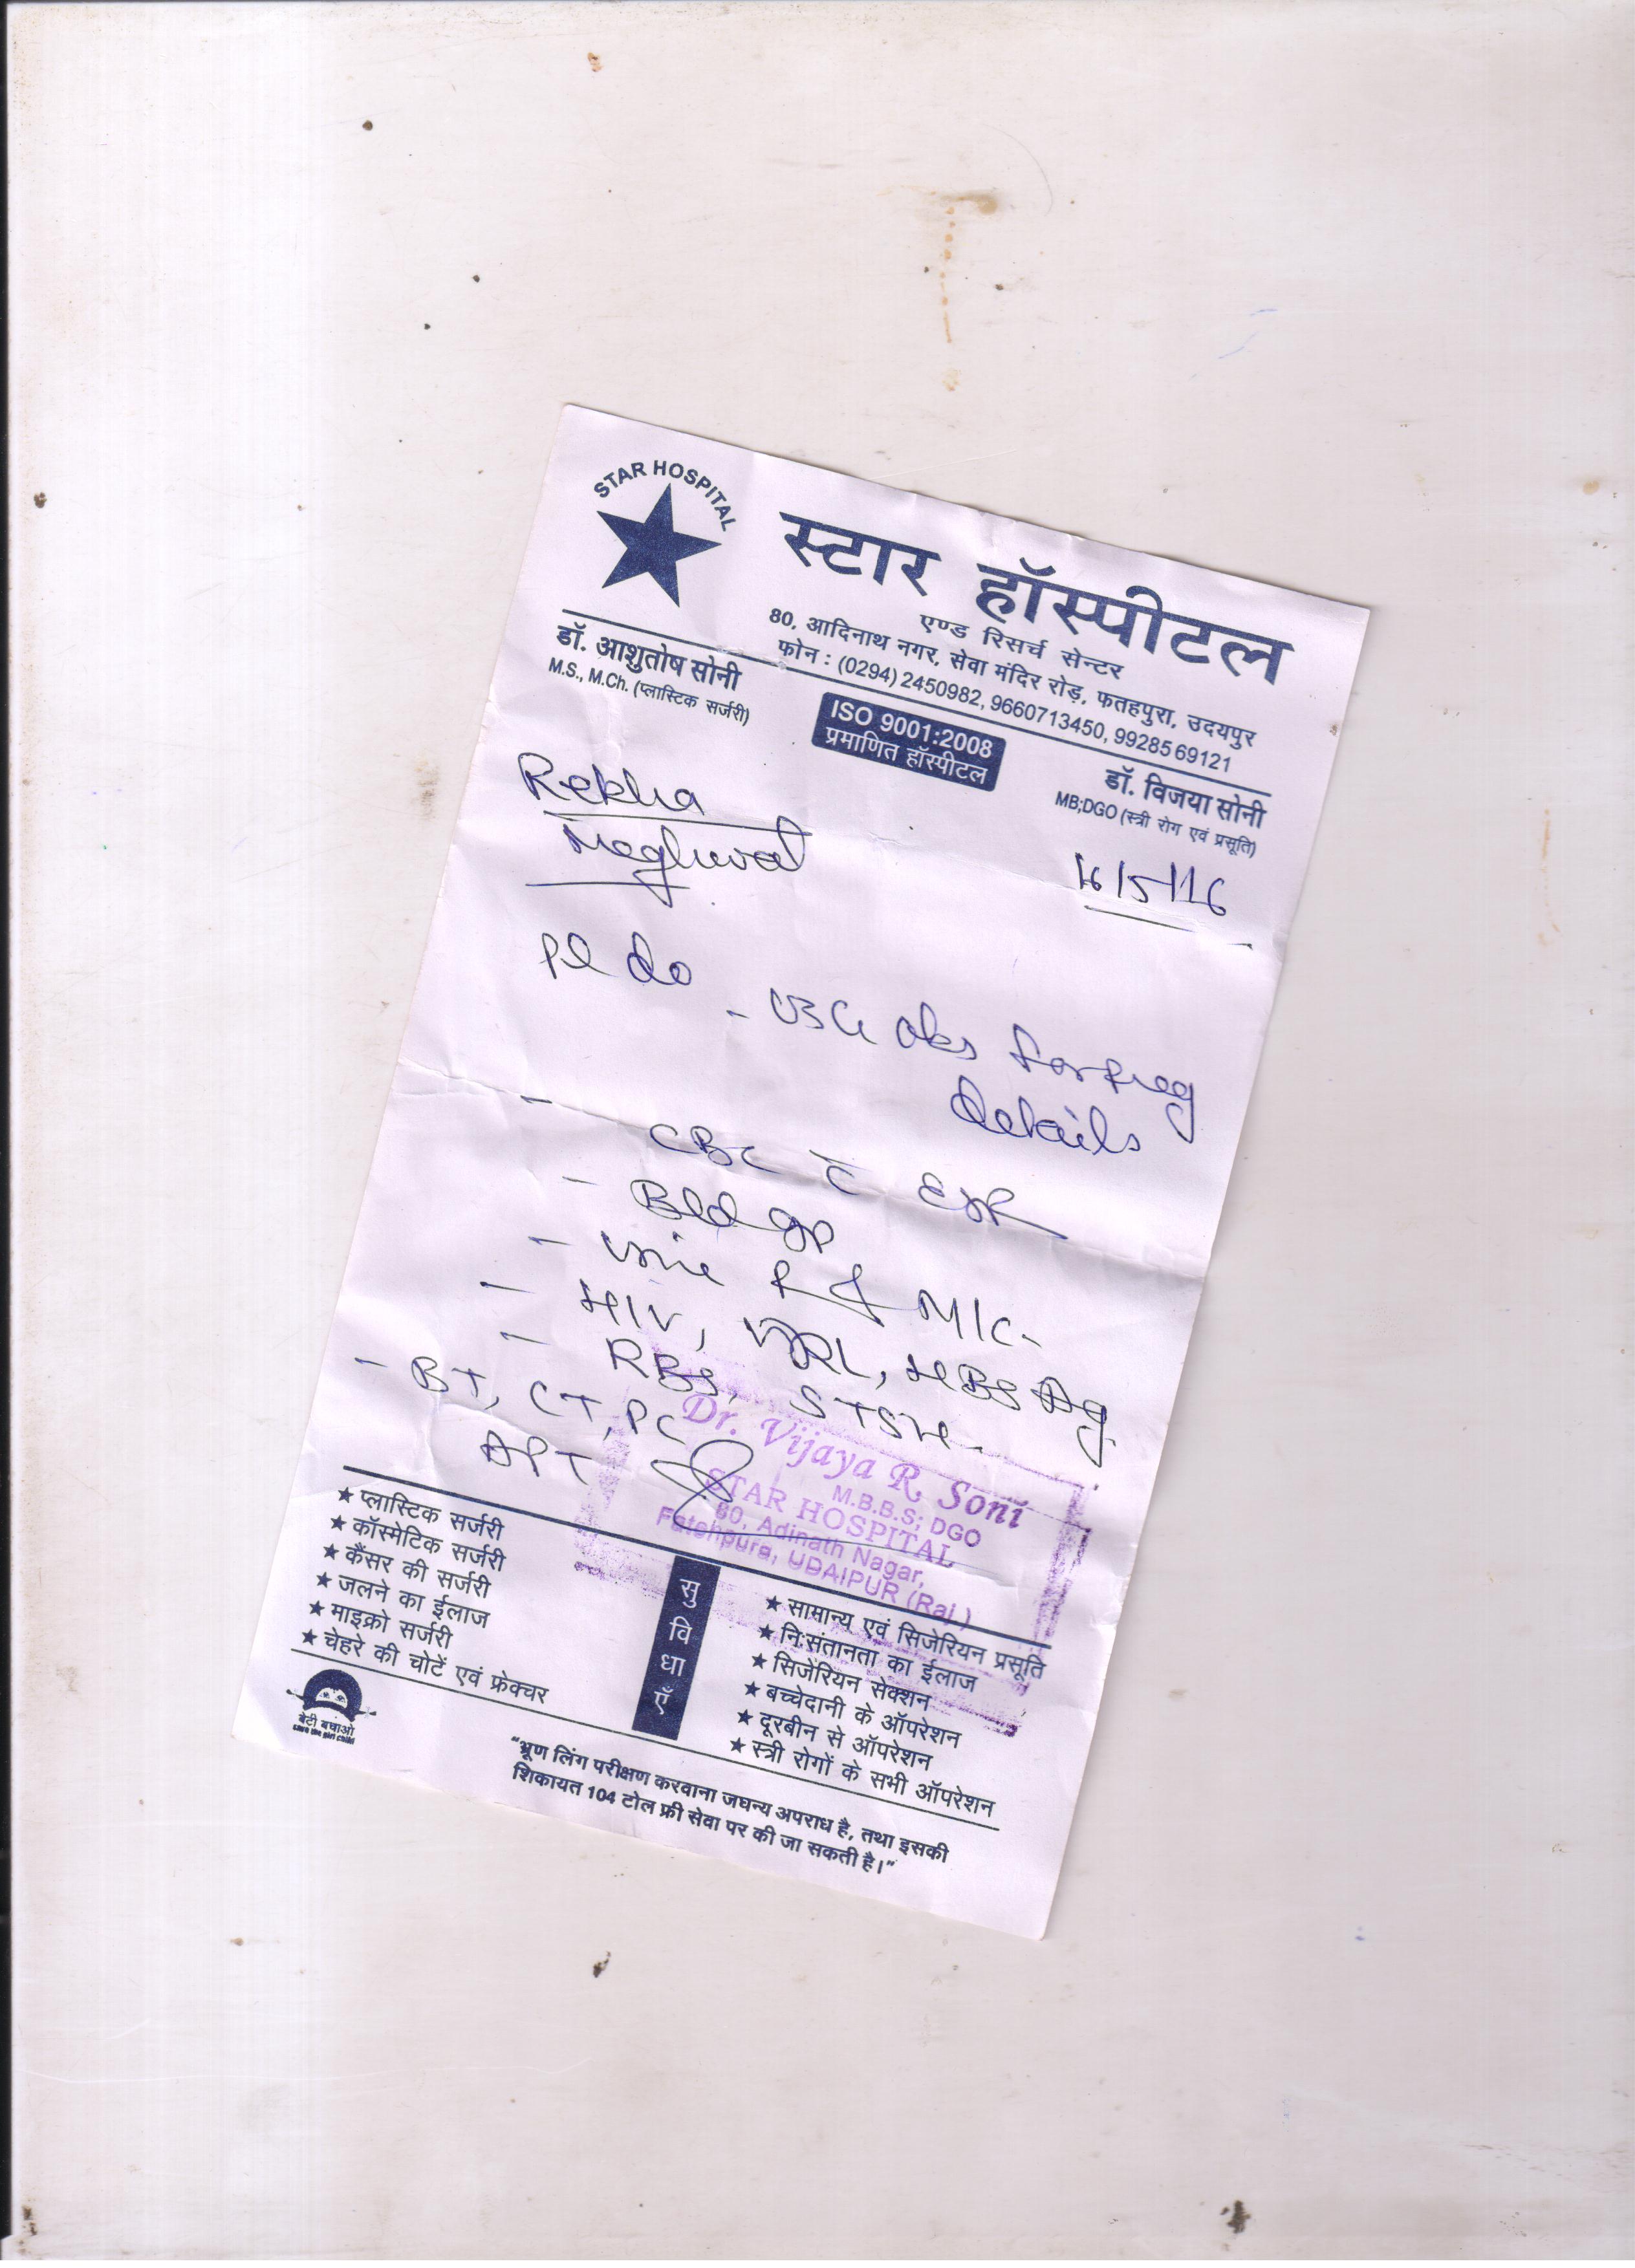 STAR HOSPITAL
स्टार हॉस्पीटल
एण्ड रिसर्च सेन्टर
80, आदिनाथ नगर, सेवा मंदिर रोड़, फतहपुरा, उदयपुर
फोन : (0294) 2450982, 9660713450, 9928569121
डॉ. आशुतोष सोनी
M.S., M.Ch. (प्लास्टिक सर्जरी)
ISO 9001:2008
प्रमाणित हॉस्पीटल
डॉ. विजया सोनी
MB;DGO (स्त्री रोग एवं प्रसूति)
Rekha
Meghwal
16/5/16
Pl do
- USG obs for preg
details
- CBC c̄ ESR
- Bld gp
- Urine R & M/C-
- HIV, VDRL, HBSAg
- RBS, STSH-
- BT, CT, PC
APT
Dr. Vijaya R. Soni
M.B.B.S; DGO
STAR HOSPITAL
80, Adinath Nagar,
Fatehpura, UDAIPUR (Raj.)
★ प्लास्टिक सर्जरी
★ कॉस्मेटिक सर्जरी
★ कैंसर की सर्जरी
★ जलने का ईलाज
★ माइक्रो सर्जरी
★ चेहरे की चोटें एवं फ्रेक्चर
सुविधाएँ
★ सामान्य एवं सिजेरियन प्रसूति
★ निःसंतानता का ईलाज
★ सिजेरियन सेक्शन
★ बच्चेदानी के ऑपरेशन
★ दूरबीन से ऑपरेशन
★ स्त्री रोगों के सभी ऑपरेशन
बेटी बचाओ
save the girl child
"भ्रूण लिंग परीक्षण करवाना जघन्य अपराध है, तथा इसकी
शिकायत 104 टोल फ्री सेवा पर की जा सकती है।"